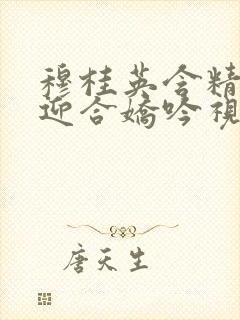 穆桂英含精
迎合娇吟视
唐天生